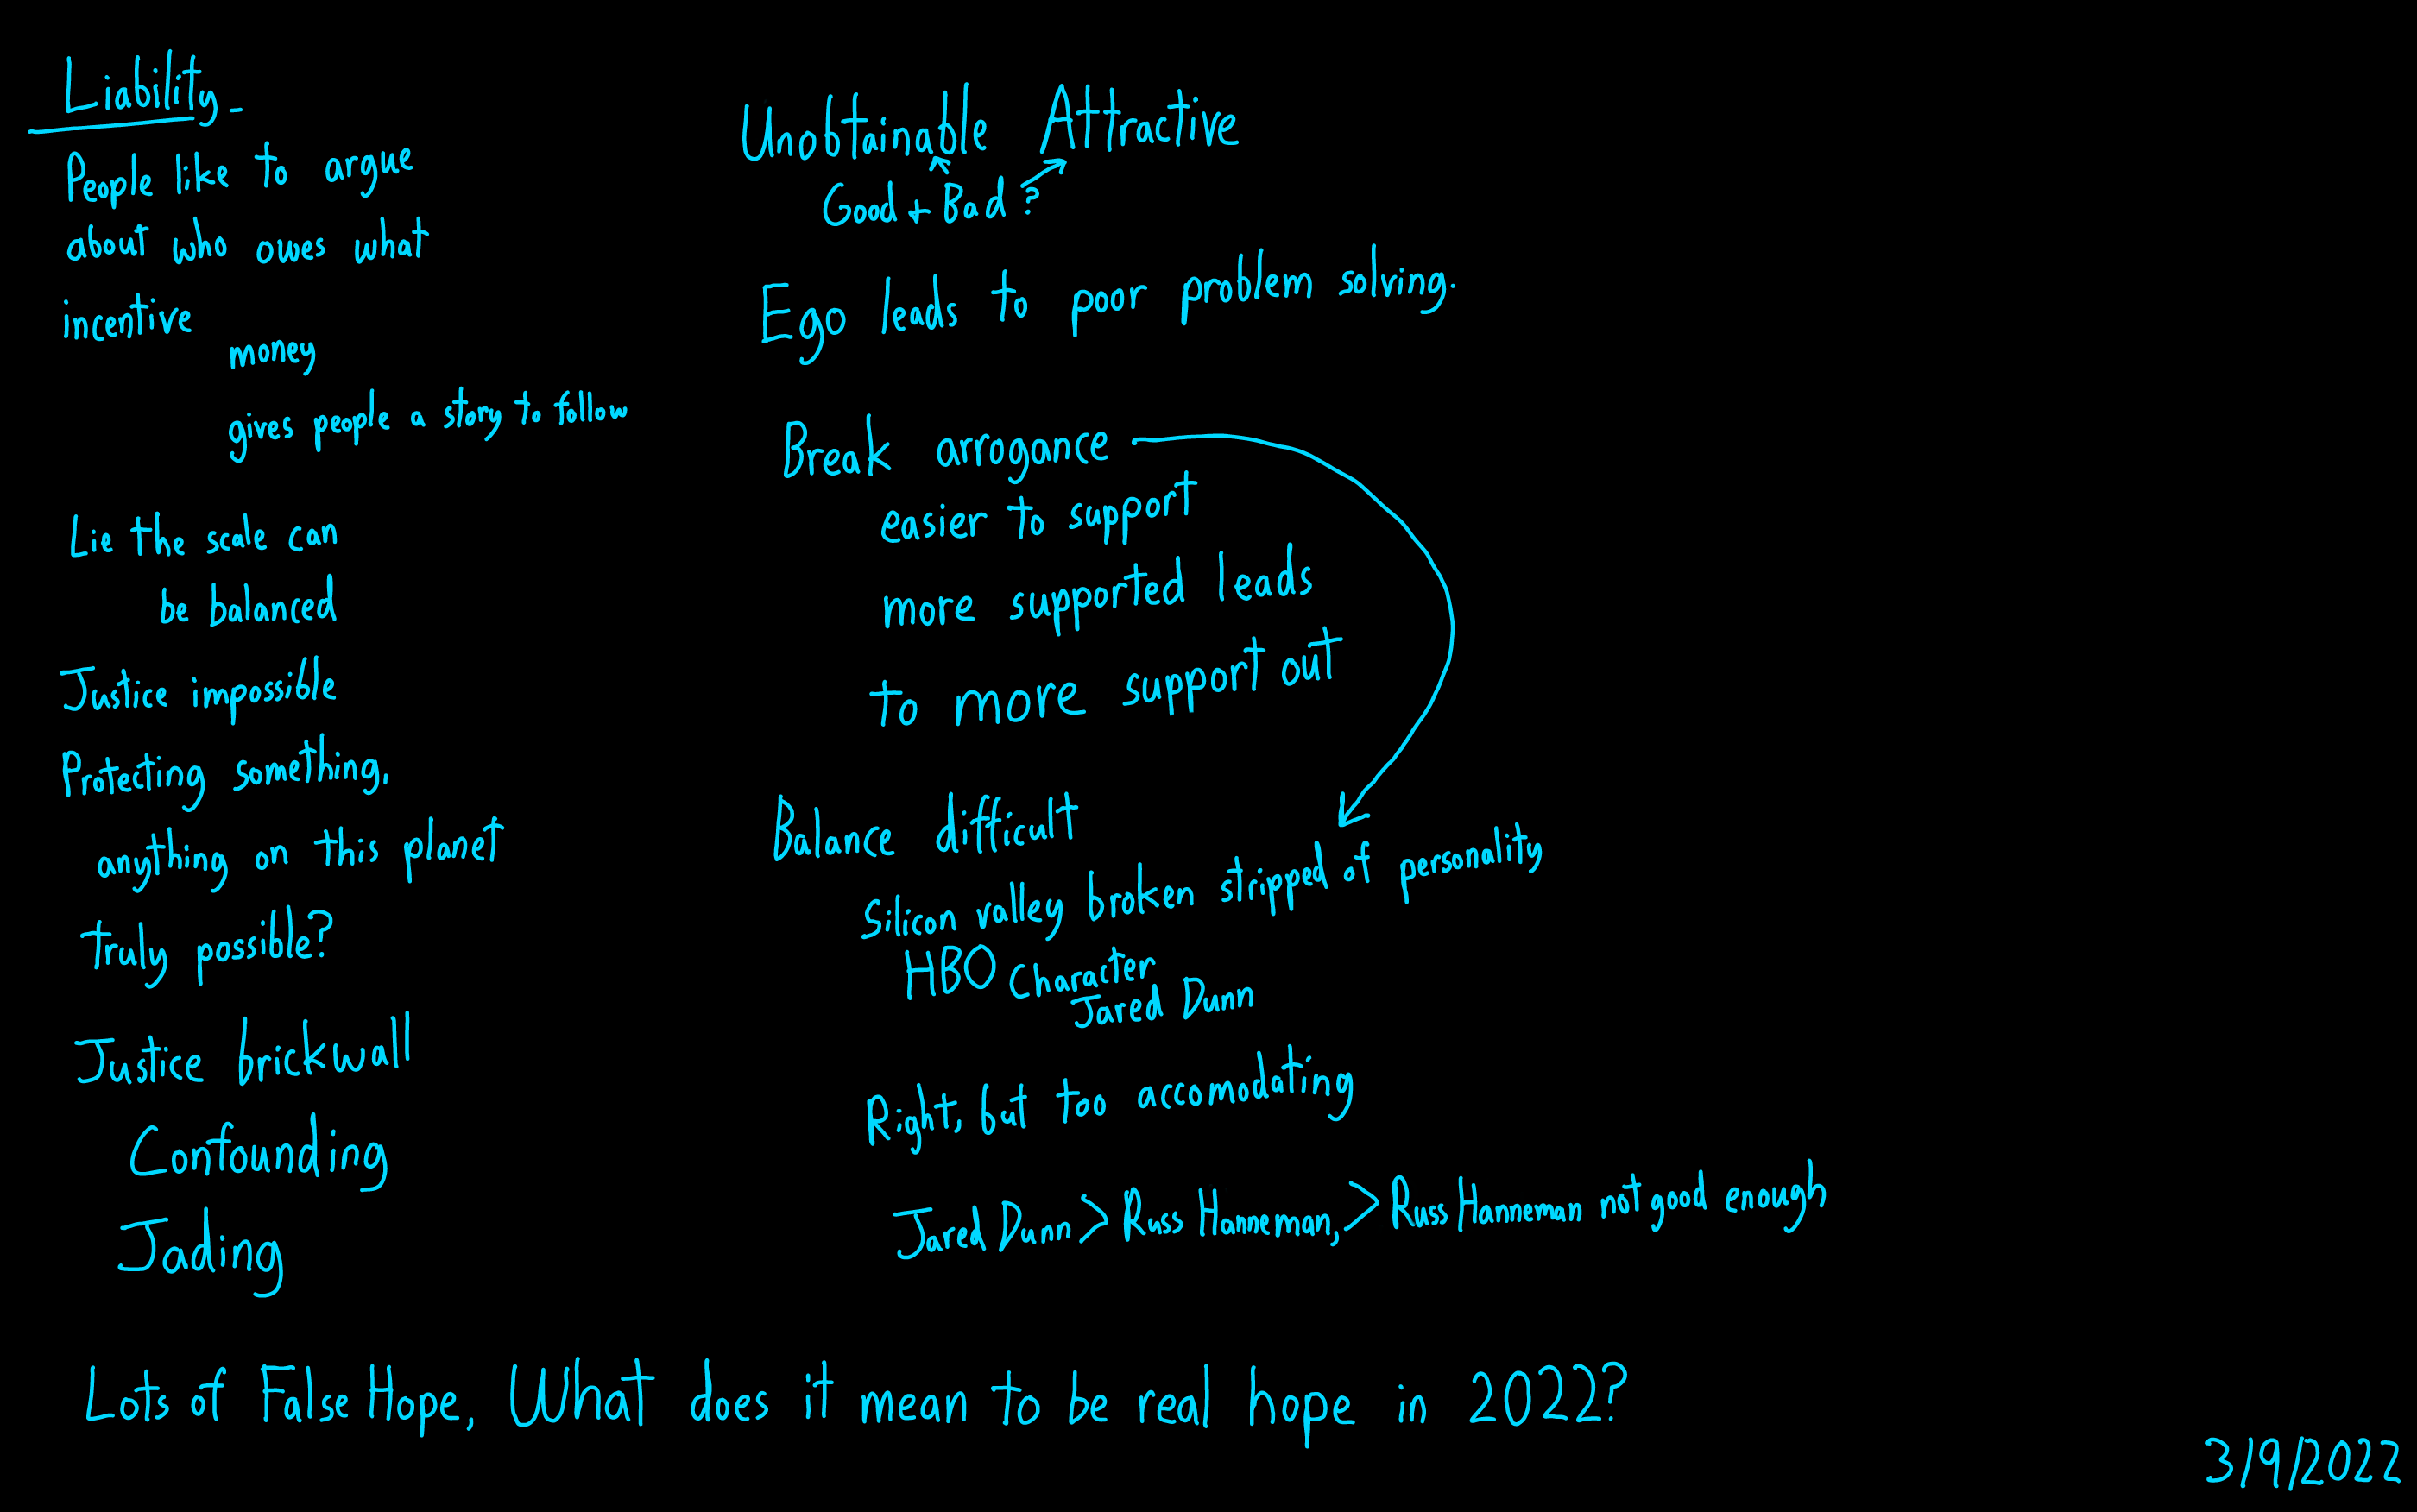 Liability-
People like to argue
about who owes what
incentive
money
gives people a story to follow
Lie the scale can
be balanced
Justice impossible
Protecting something,
anything on this planet
truly possible?
Justice brickwall
Confounding
Jading
Unobtainable Attractive
Good + Bad?
Ego leads to poor problem solving.
Break arrogance
easier to support
more supported leads
to more support out
Balance difficult
Silicon valley broken stripped of personality
HBO Character
Jared Dunn
Right, but too accomodating
Jared Dunn > Russ Hanneman, > Russ Hanneman not good enough
Lots of False Hope, What does it mean to be real hope in 2022?
3/9/2022